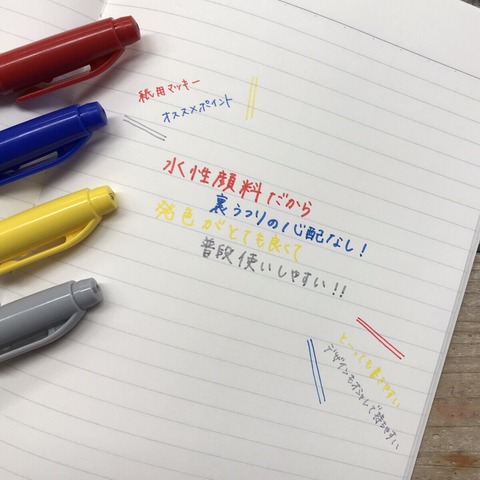 紙用マッキー
オススメポイント
水性顔料だから
裏うつりの心配なし！
発色がとても良くて
普段使いしやすい！！
とっても書きやすい
デザインもオシャレで持ちやすい